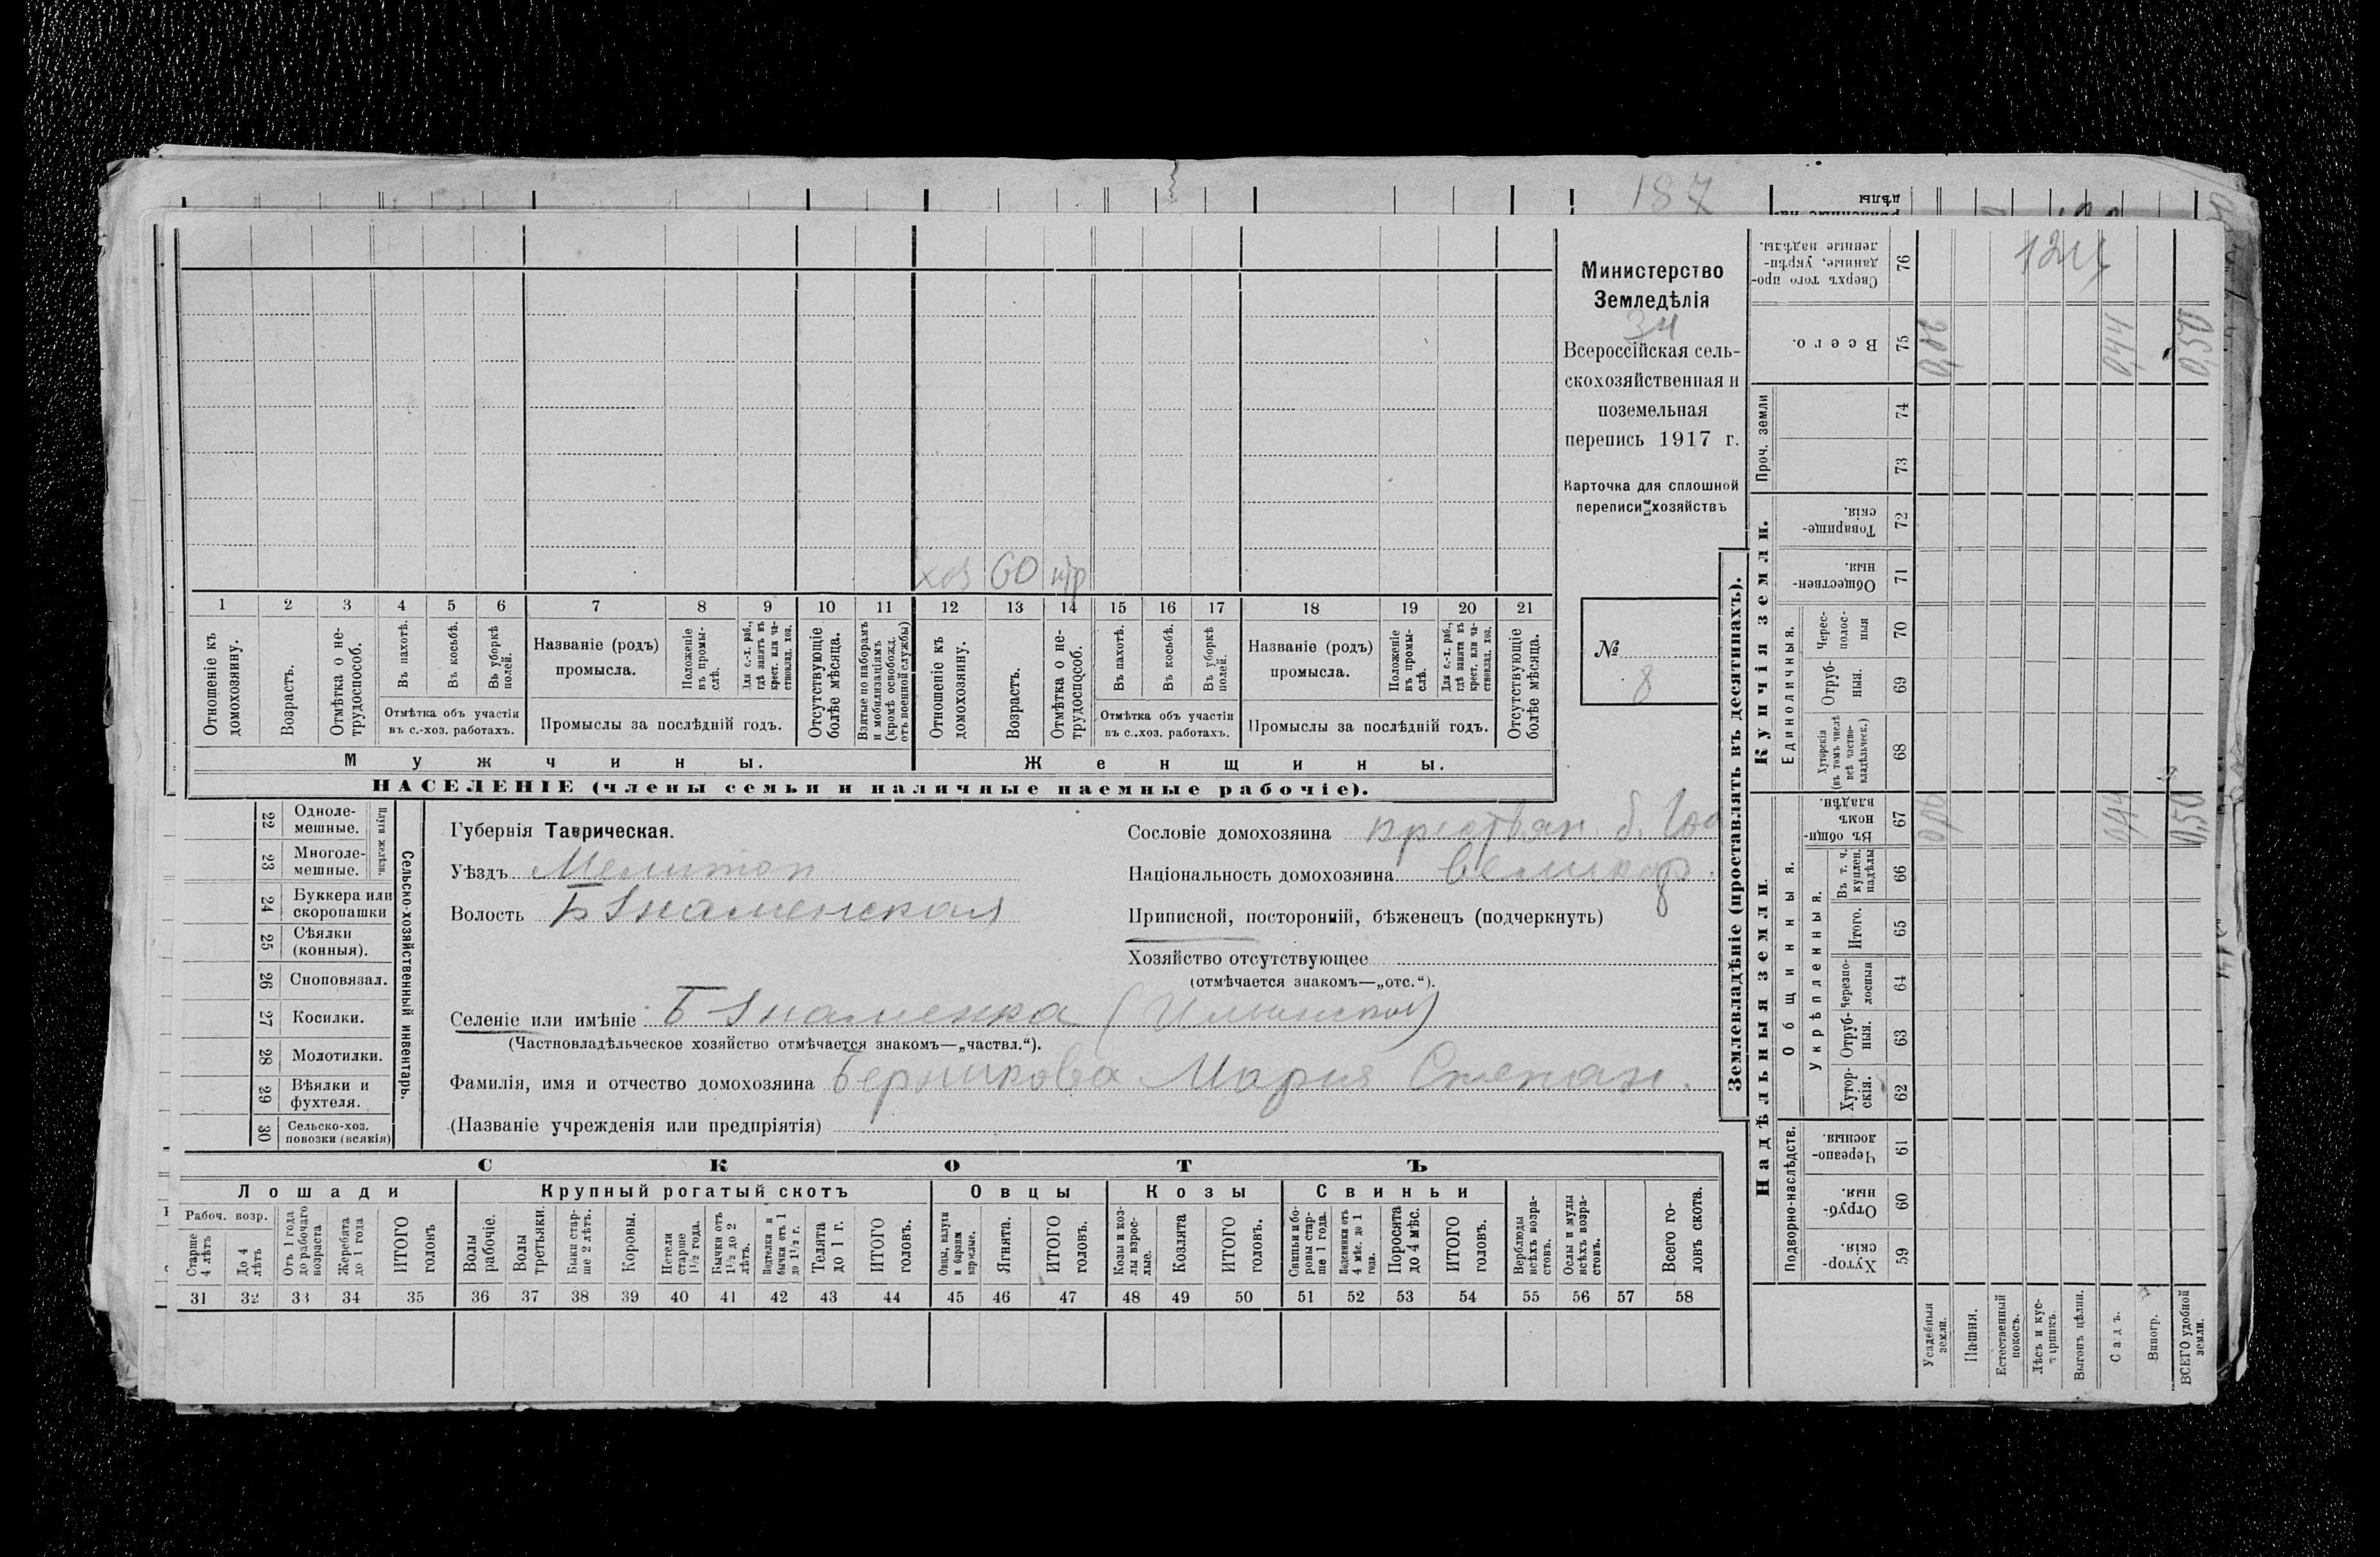 187
Министерство
Земледѣлія
34
Всероссійская сель-
скохозяйственная и
поземельная
перепись 1917 г.
Карточка для сплошной
переписи хозяйствъ
№
8
хоз 60 нтр
1 2 3 4 5 6 7 8 9 10 11 12 13 14 15 16 17 18 19 20 21
Отношеніе къ домохозяину.
Возрастъ.
Отмѣтка о не-трудоспособ.
Въ пахотѣ.
Въ косьбѣ.
Въ уборкѣ полей.
Отмѣтка объ участіи
въ с.-хоз. работахъ.
Названіе (родъ)
промысла.
Положеніе въ промы-слѣ.
Для с.-х. раб., гдѣ занятъ въ крест. или ча-стновлад. хоз.
Промыслы за послѣдній годъ.
Отсутствующіе болѣе мѣсяца.
Взятые по наборамъ и мобилизаціямъ (кромѣ освобожд. отъ военной службы)
Отношеніе къ домохозяину.
Возрастъ.
Отмѣтка о не-трудоспособ.
Въ пахотѣ.
Въ косьбѣ.
Въ уборкѣ полей.
Отмѣтка объ участіи
въ с.-хоз. работахъ.
Названіе (родъ)
промысла.
Положеніе въ промы-слѣ.
Для с.-х. раб., гдѣ занята въ крест. или ча-стновлад. хоз.
Промыслы за послѣдній годъ.
Отсутствующіе болѣе мѣсяца.
Мужчины. Женщины.
НАСЕЛЕНІЕ (члены семьи и наличные наемные рабочіе).
22 Одноле-мешные.
23 Многоле-мешные.
Плуги желѣзн.
24 Буккера или скоропашки
25 Сѣялки (конныя).
26 Сноповязал.
27 Косилки.
28 Молотилки.
29 Вѣялки и фухтеля.
30 Сельско-хоз. повозки (всякія)
Сельско-хозяйственный инвентарь.
Губернія Таврическая.
Уѣздъ Мелитоп
Волость Б Знаменская
Сословіе домохозяина крестьян. б. Гос
Національность домохозяина великор.
Приписной, посторонній, бѣженецъ (подчеркнуть)
Хозяйство отсутствующее
(отмѣчается знакомъ—„отс.“).
Селеніе или имѣніе Б Знаменка (Ильинской)
(Частновладѣльческое хозяйство отмѣчается знакомъ—„частвл.“).
Фамилія, имя и отчество домохозяина Берникова Мария Степан.
(Названіе учрежденія или предпріятія)
СКОТЪ
Лошади Крупный рогатый скотъ Овцы Козы Свиньи
Рабоч. возр.
Старше 4 лѣтъ
До 4 лѣтъ
Отъ 1 года до рабочаго возраста
Жеребята до 1 года
ИТОГО головъ
Волы рабочіе.
Волы третьяки.
Быки стар-ше 2 лѣтъ.
Коровы.
Нетели старше 1½ года.
Бычки отъ 1½ до 2 лѣтъ.
Подтелки и бычки отъ 1 до 1½ г.
Телята до 1 г.
ИТОГО головъ.
Овцы, валухи и бараны взрослые.
Ягнята.
ИТОГО головъ.
Козы и коз-лы взрос-лые.
Козлята
ИТОГО головъ.
Свиньи и бо-ровы стар-ше 1 года.
Подсвинки отъ 4 мѣс. до 1 года.
Поросята до 4 мѣс.
ИТОГО головъ.
Верблюды всѣхъ возра-стовъ.
Ослы и мулы всѣхъ возра-стовъ.
Всего го-ловъ скота.
31 32 33 34 35 36 37 38 39 40 41 42 43 44 45 46 47 48 49 50 51 52 53 54 55 56 57 58
Землевладѣніе (проставлять въ десятинахъ).
Сверхъ того про-данные, укрѣп-ленные надѣлы. 76 124
Всего. 75 0,06 0,44 0,50
Проч. земли
74
73
Купчія земли.
Товарище-скія. 72
Обществен-ныя. 71
Единоличныя.
Черес-полос-ныя 70
Отруб-ныя. 69
Хуторскія (въ томъ числѣ всѣ частно-владѣльческ.) 68
Надѣльныя земли
Общинныя.
Въ общин-номъ владѣн. 67 0,06 0,44 0,50
Укрѣпленныя.
Въ т. ч. куплен. надѣлы 66
Итого. 65
Черезпо-лосныя 64
Отруб-ныя. 63
Хутор-скія. 62
Подворно-наслѣдств.
Черезпо-лосныя. 61
Отруб-ныя. 60
Хутор-скія. 59
Усадебныя земли.
Пашня.
Естественный покосъ.
Лѣсъ и кус-тарникъ.
Выгонъ цѣлин.
Садъ.
Виногр.
ВСЕГО удобной земли.